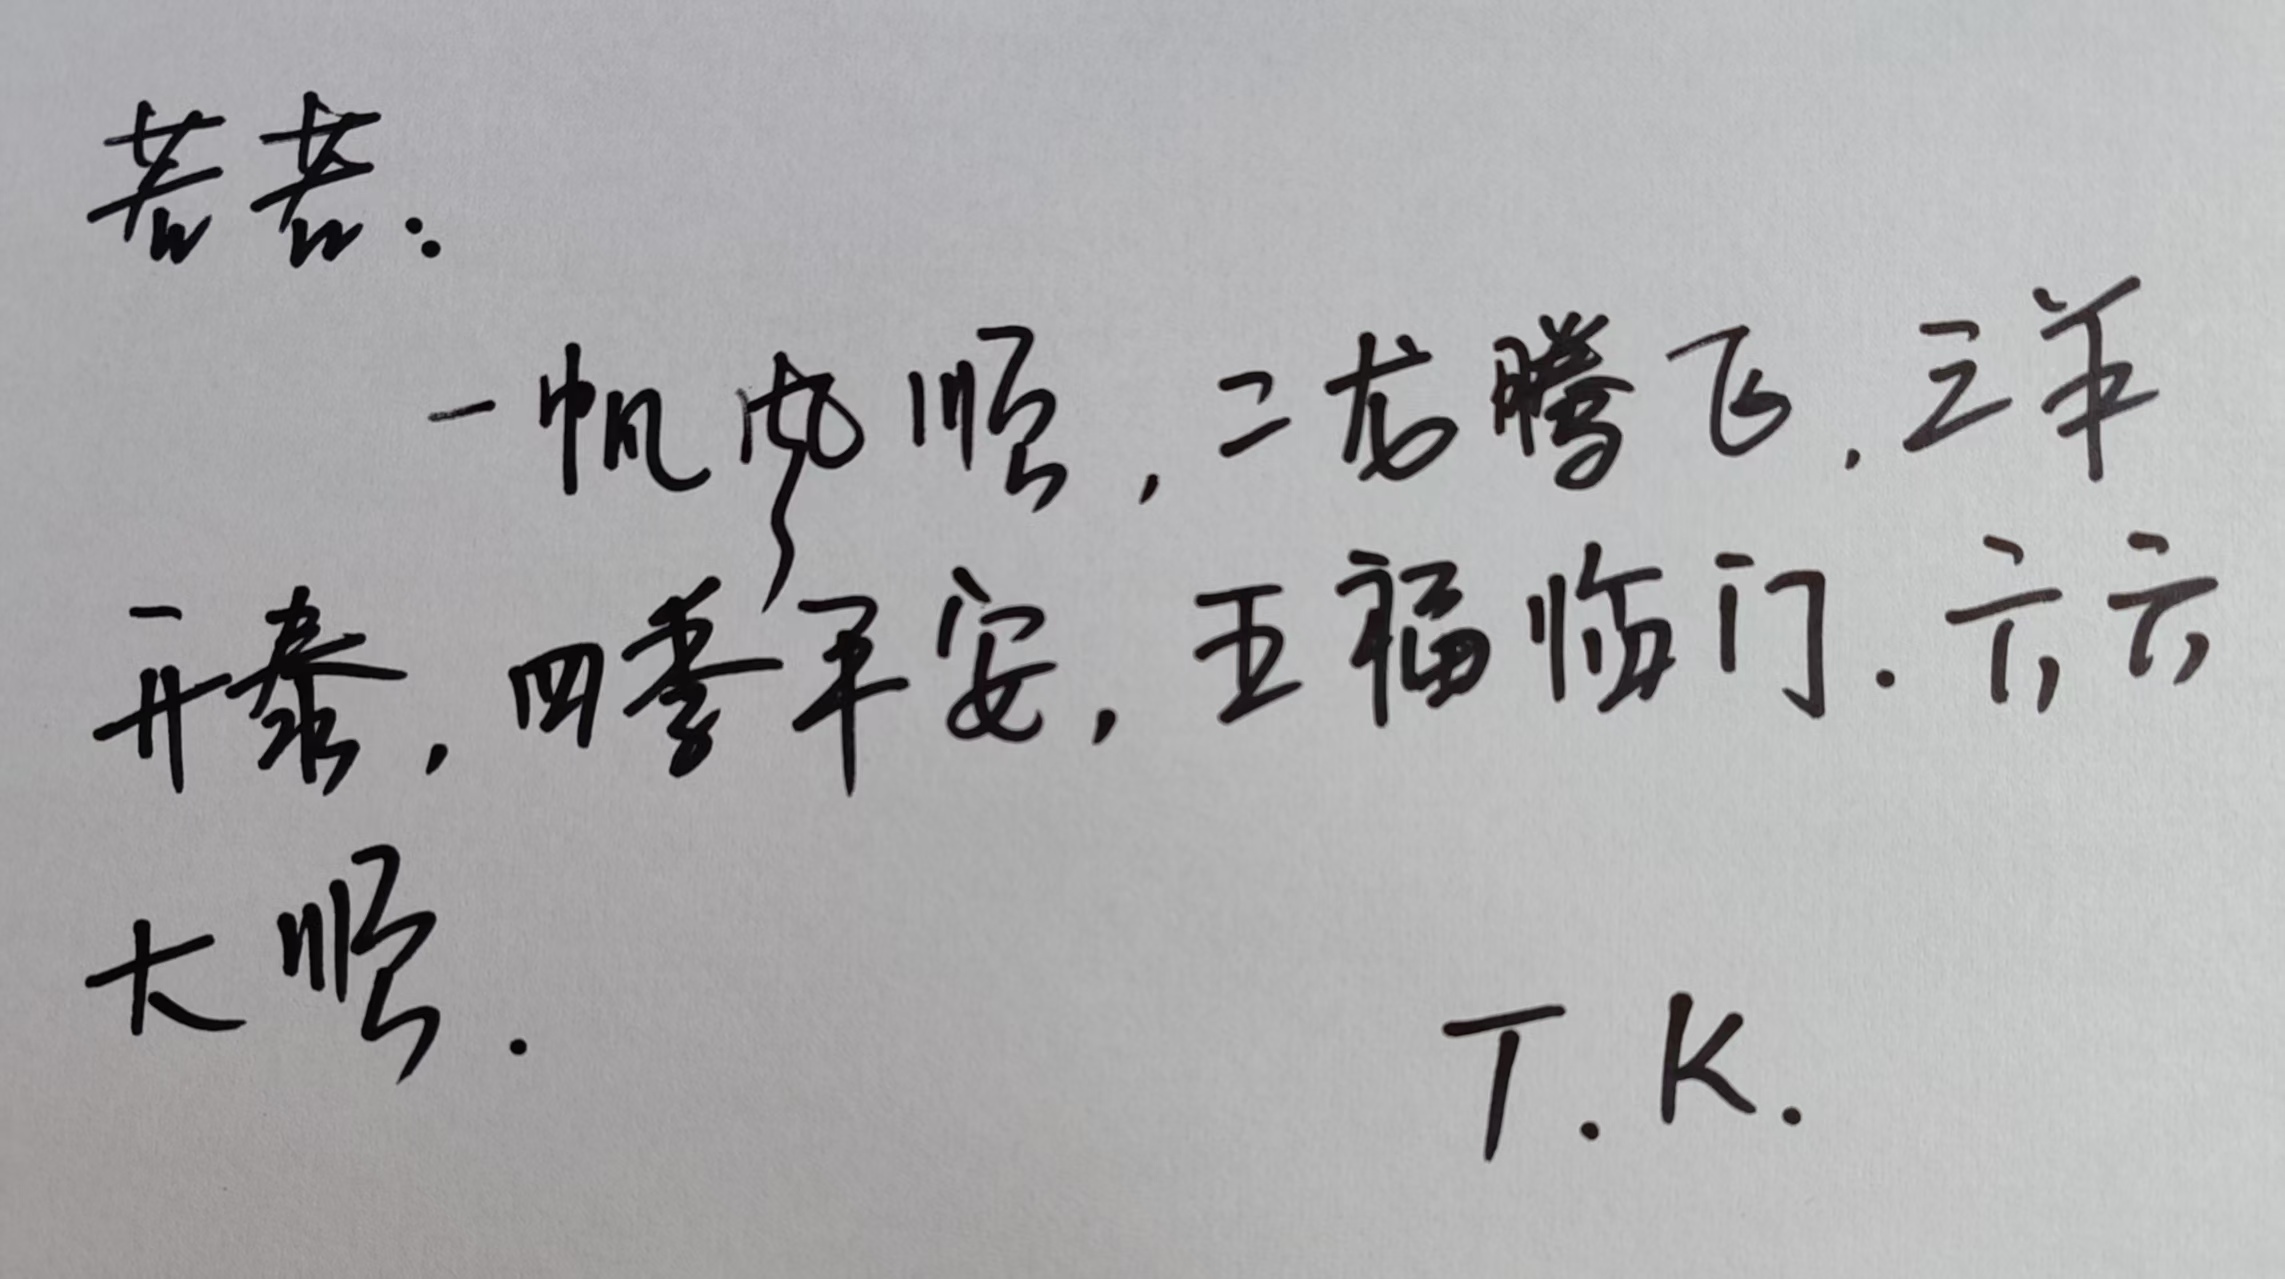 若若：
一帆风顺，二龙腾飞，三羊
开泰，四季平安，五福临门．六六
大顺．
T.K.